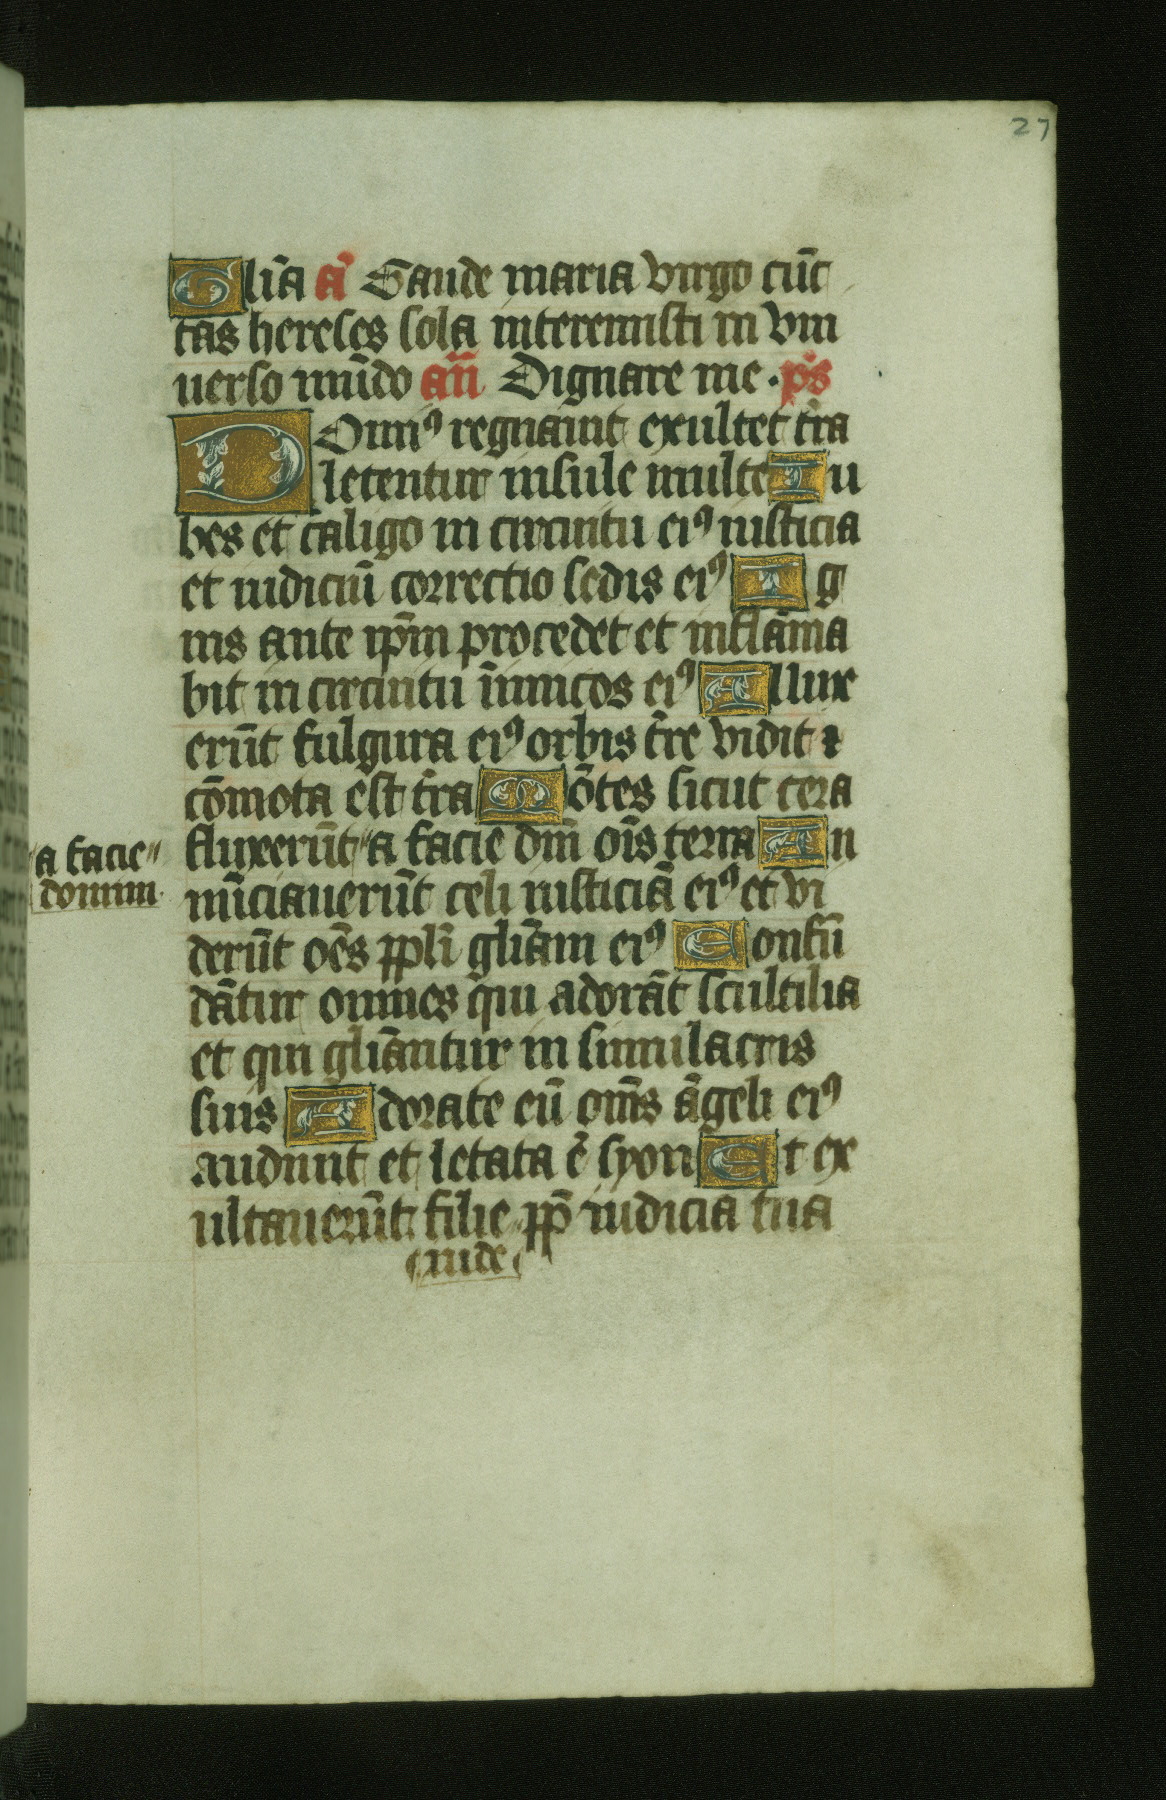 27
Gl̄ia añ Gaude maria virgo cūc
tas hereses sola interemisti in vni
uerso mūdo añ Dignare me. ps̄
DOminꝰ regnauit exultet tr̄a
letentur insule multe Iu
bes et caligo in circuitu eiꝰ iusticia
et iudiciū correctio sedis eiꝰ Ig
nis ante ip̄m procedet et inflāma
bit in circuitu īimicos eiꝰ Allux
erūt fulgura eiꝰ orbis tr̄e vidit ⁊
cōmota est tr̄a Mōtes sicut cera
fluxerūt〃a facie dn̄i oīs terra An
a facie〃
domini
nūciauerūt celi iusticiā eiꝰ et vi
derūt oēs ppl̄i gl̄iam eiꝰ Confū
dātur omnes qui adorāt scultilia
et qui gl̄iantur in simulacris
suis Adorate eū om̄s āgeli eiꝰ
audiuit et letata ē syon Et ex
ultauerūt filie〃pp̄ iudicia tua
iude